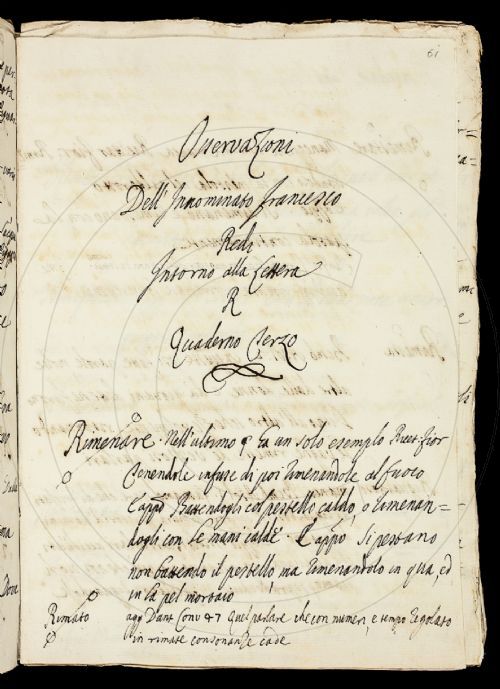 61
Osservazioni
Dell'Innominato Francesco
Redi
Intorno alla Lettera
R
Quaderno Terzo
Rimenare. Nell'ultimo § fa un solo esempio Ricet. Fior
Tenendole infuse di poi rimenandole al fuoco
E app.o battendogli col pestello caldo, o rimenan=
dogli con le mani calde. E app.o si pestano
non battendo il pestello, ma rimenandolo in qua, ed
in là pel mortaio
Rimato
agg Dant. Conv 47 Quel parlare che con numeri, e tempo regolato
in rimate consonanze cade